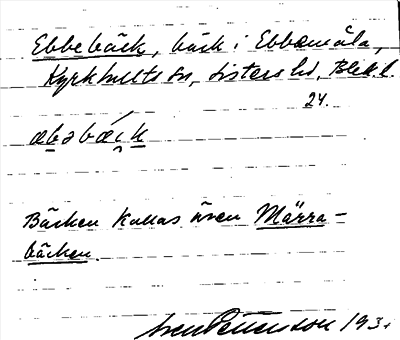 Ebbebäck, bäck i Ebbamåla,
Kyrkhults sn, Listers hd, Blek. l.
24.
æbəbæ̀k
Bäcken kallas även Märra-
bäcken.
Sven Pettersson 193